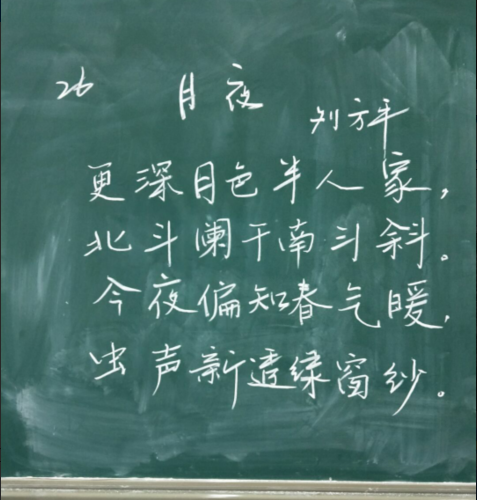 26 月夜
刘方平
更深月色半人家，
北斗阑干南斗斜。
今夜偏知春气暖，
虫声新透绿窗纱。